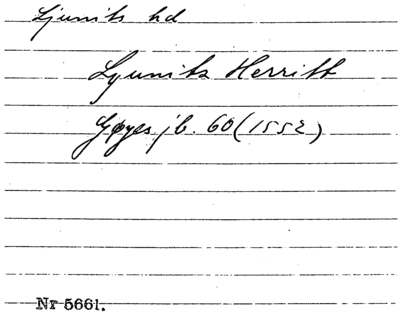 Ljunits hd
Lyunitz Herritt
Gøyes jb. 60 (1552)
Nr 5661.